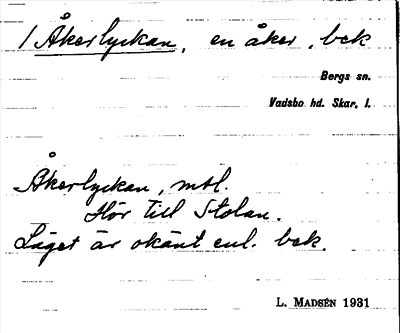 / Åkerlyckan, en åker, bek
Bergs sn.
Vadsbo hd. Skar. l.
Åkerlyckan, mtl.
Hör till Stolan.
Läget är okänt enl. bek.
L. MADSÉN 1931